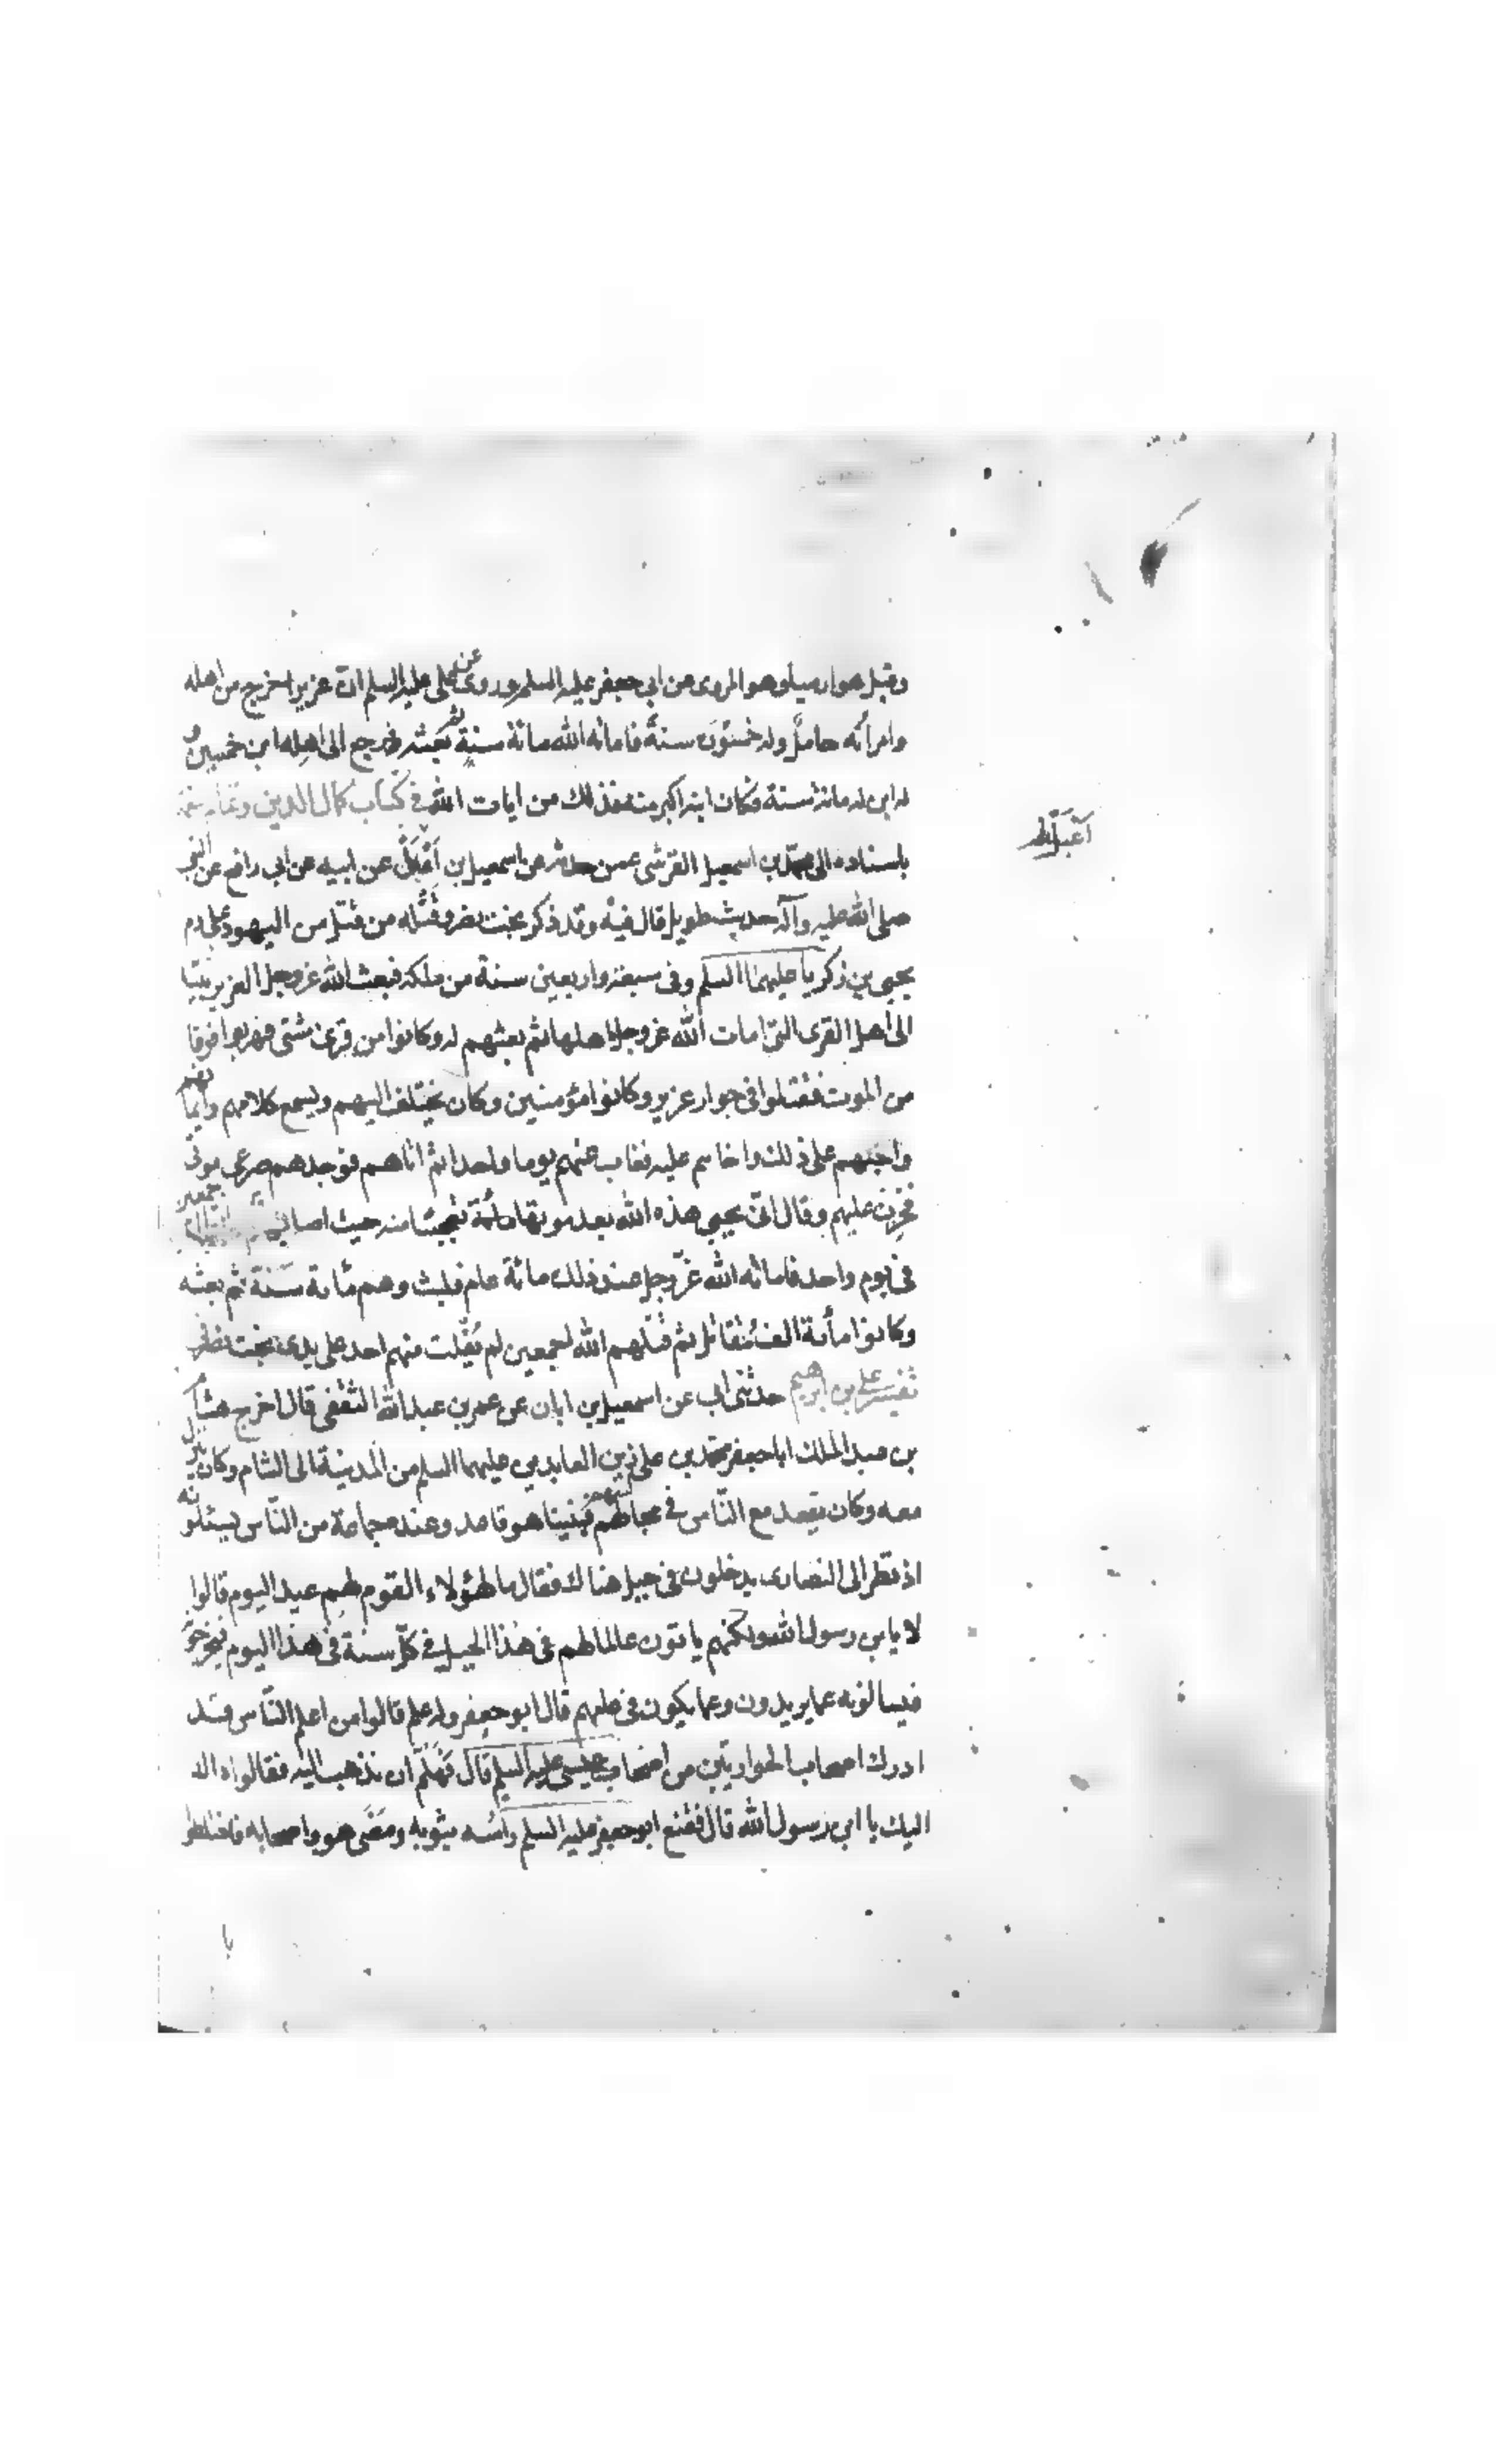 وقيل هو ارميا وهو المروى عن ابى جعفر عليه السلم وروى عن على عليه السلم ان عزيرا خرج من اهله
وامرأته حامل وله خمسون سنة فاماته الله مائة سنة ثم بعثه فرجع الى اهله ابن خمسين
له ابن له مائة سنة فكان ابنه اكبر منه فذلك من ايات الله فى كتاب كمال الدين وتمام
باسناده الى محمد بن اسمعيل القرشى عمن حدثه عن اسمعيل بن عن ابيه عن ابى رافع عن النبى
صلى الله عليه وآله حديث طويل قال فيه وقد ذكر بخت نصر وقتله من قتل من اليهود على دم
يحيى بن زكريا عليهما السلم وفى سبعة واربعين سنة من ملكه فبعث الله عز وجل العزير نبيا
الى اهل القرى التى امات الله عز وجل اهلها ثم بعثهم له وكانوا من قرى شتى فهربوا فرقا
من الموت فنزلوا فى جوار عزير وكانوا مؤمنين وكان يختلف اليهم ويسمع كلامهم وايمانهم
واحبهم على ذلك واخاهم عليه فغاب عنهم يوما واحدا ثم اتاهم فوجدهم صرعى موتى
فحزن عليهم وقال انى يحيى هذه الله بعد موتها تعجبا منه حيث اصابهم
فى يوم واحد فاماته الله عز وجل عند ذلك مائة عام فلبث وهم مائة سنة ثم بعثه
وكانوا مأة الف مقاتل ثم قتلهم الله اجمعين لم يفلت منهم احد على يدى بخت نصر فى
تفسير على بن ابرهيم حدثنى ابى عن اسمعيل بن ابان عن عمر بن عبد الله الثقفى قال اخرج هشام
بن عبد الملك ابا جعفر محمد بن على زين العابدين عليهما السلم من المدينة الى الشام وكان ينزل
معه وكان يقعد مع الناس فى مجالسهم فبينا هو قاعد وعنده جماعة من الناس يسئلونه
اذ نظر الى النصارى يدخلون فى جبل هناك فقال ما لهؤلاء القوم الهم عيد اليوم قالوا
لا يا بن رسول الله ولكنهم ياتون عالما لهم فى هذا الجبل فى كل سنة فى هذا اليوم فيخرجونه
فيسالونه عما يريدون وعما يكون فى عامهم قال ابو جعفر وله علم قالوا من اعلم الناس قد
ادرك اصحاب الحواريين من اصحاب عيسى عليه السلم قال فهلم ان نذهب اليه فقالوا ذاك
اليك يا ابن رسول الله قال فقنع ابو جعفر عليه السلم راسه بثوبه ومضى هو واصحابه فاختلطوا
با